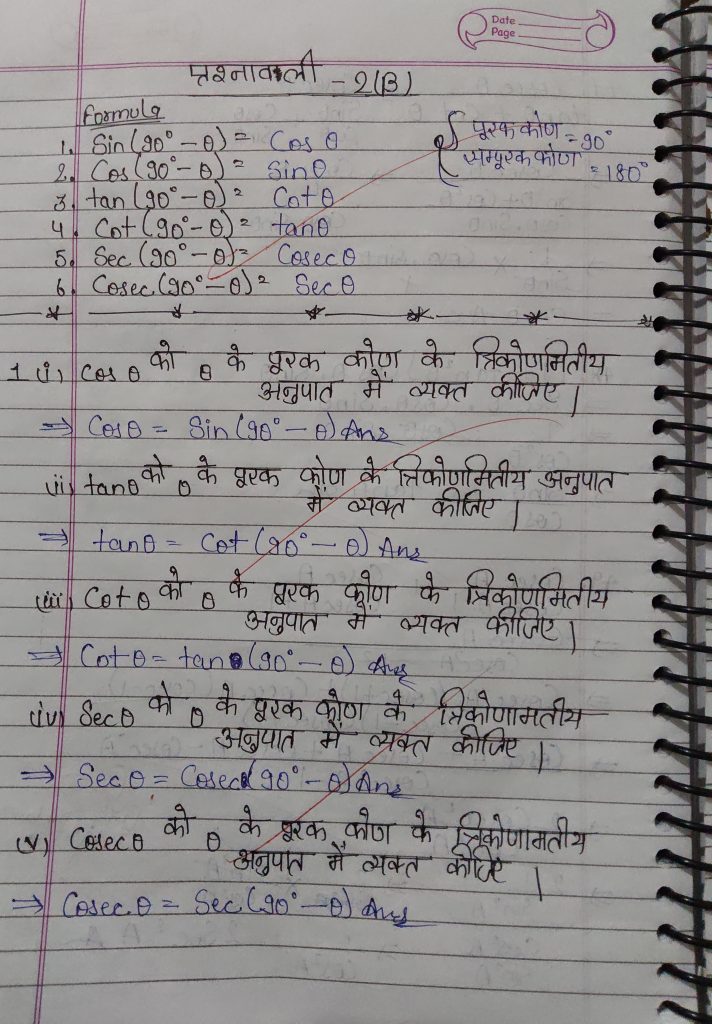 Date
Page
प्रश्नावली - 2(B)
Formula
1. Sin(90° - θ) = Cos θ
2. Cos(90° - θ) = Sinθ
3. tan(90° - θ) = Cotθ
4. Cot(90° - θ) = tanθ
5. Sec(90° - θ) = Cosecθ
6. Cosec(90° - θ) = Sec θ
पूरक कोण = 90°
सम्पूरक कोण = 180°
1 (i) Cosθ को θ के पूरक कोण के त्रिकोणमितीय
अनुपात में व्यक्त कीजिए |
⇒ Cosθ = Sin(90° - θ) Ans
(ii) tanθ को θ के पूरक कोण के त्रिकोणमितीय अनुपात
में व्यक्त कीजिए |
⇒ tanθ = Cot(90° - θ) Ans
(iii) Cotθ को θ के पूरक कोण के त्रिकोणमितीय
अनुपात में व्यक्त कीजिए |
⇒ Cotθ = tan(90° - θ) Ans
(iv) Secθ को θ के पूरक कोण के त्रिकोणामतीय
अनुपात में व्यक्त कीजिए |
⇒ Secθ = Cosec(90° - θ) Ans
(v) Cosecθ को θ के पूरक कोण के त्रिकोणामतीय
अनुपात में व्यक्त कीजिए |
⇒ Cosec θ = Sec(90° - θ) Ans